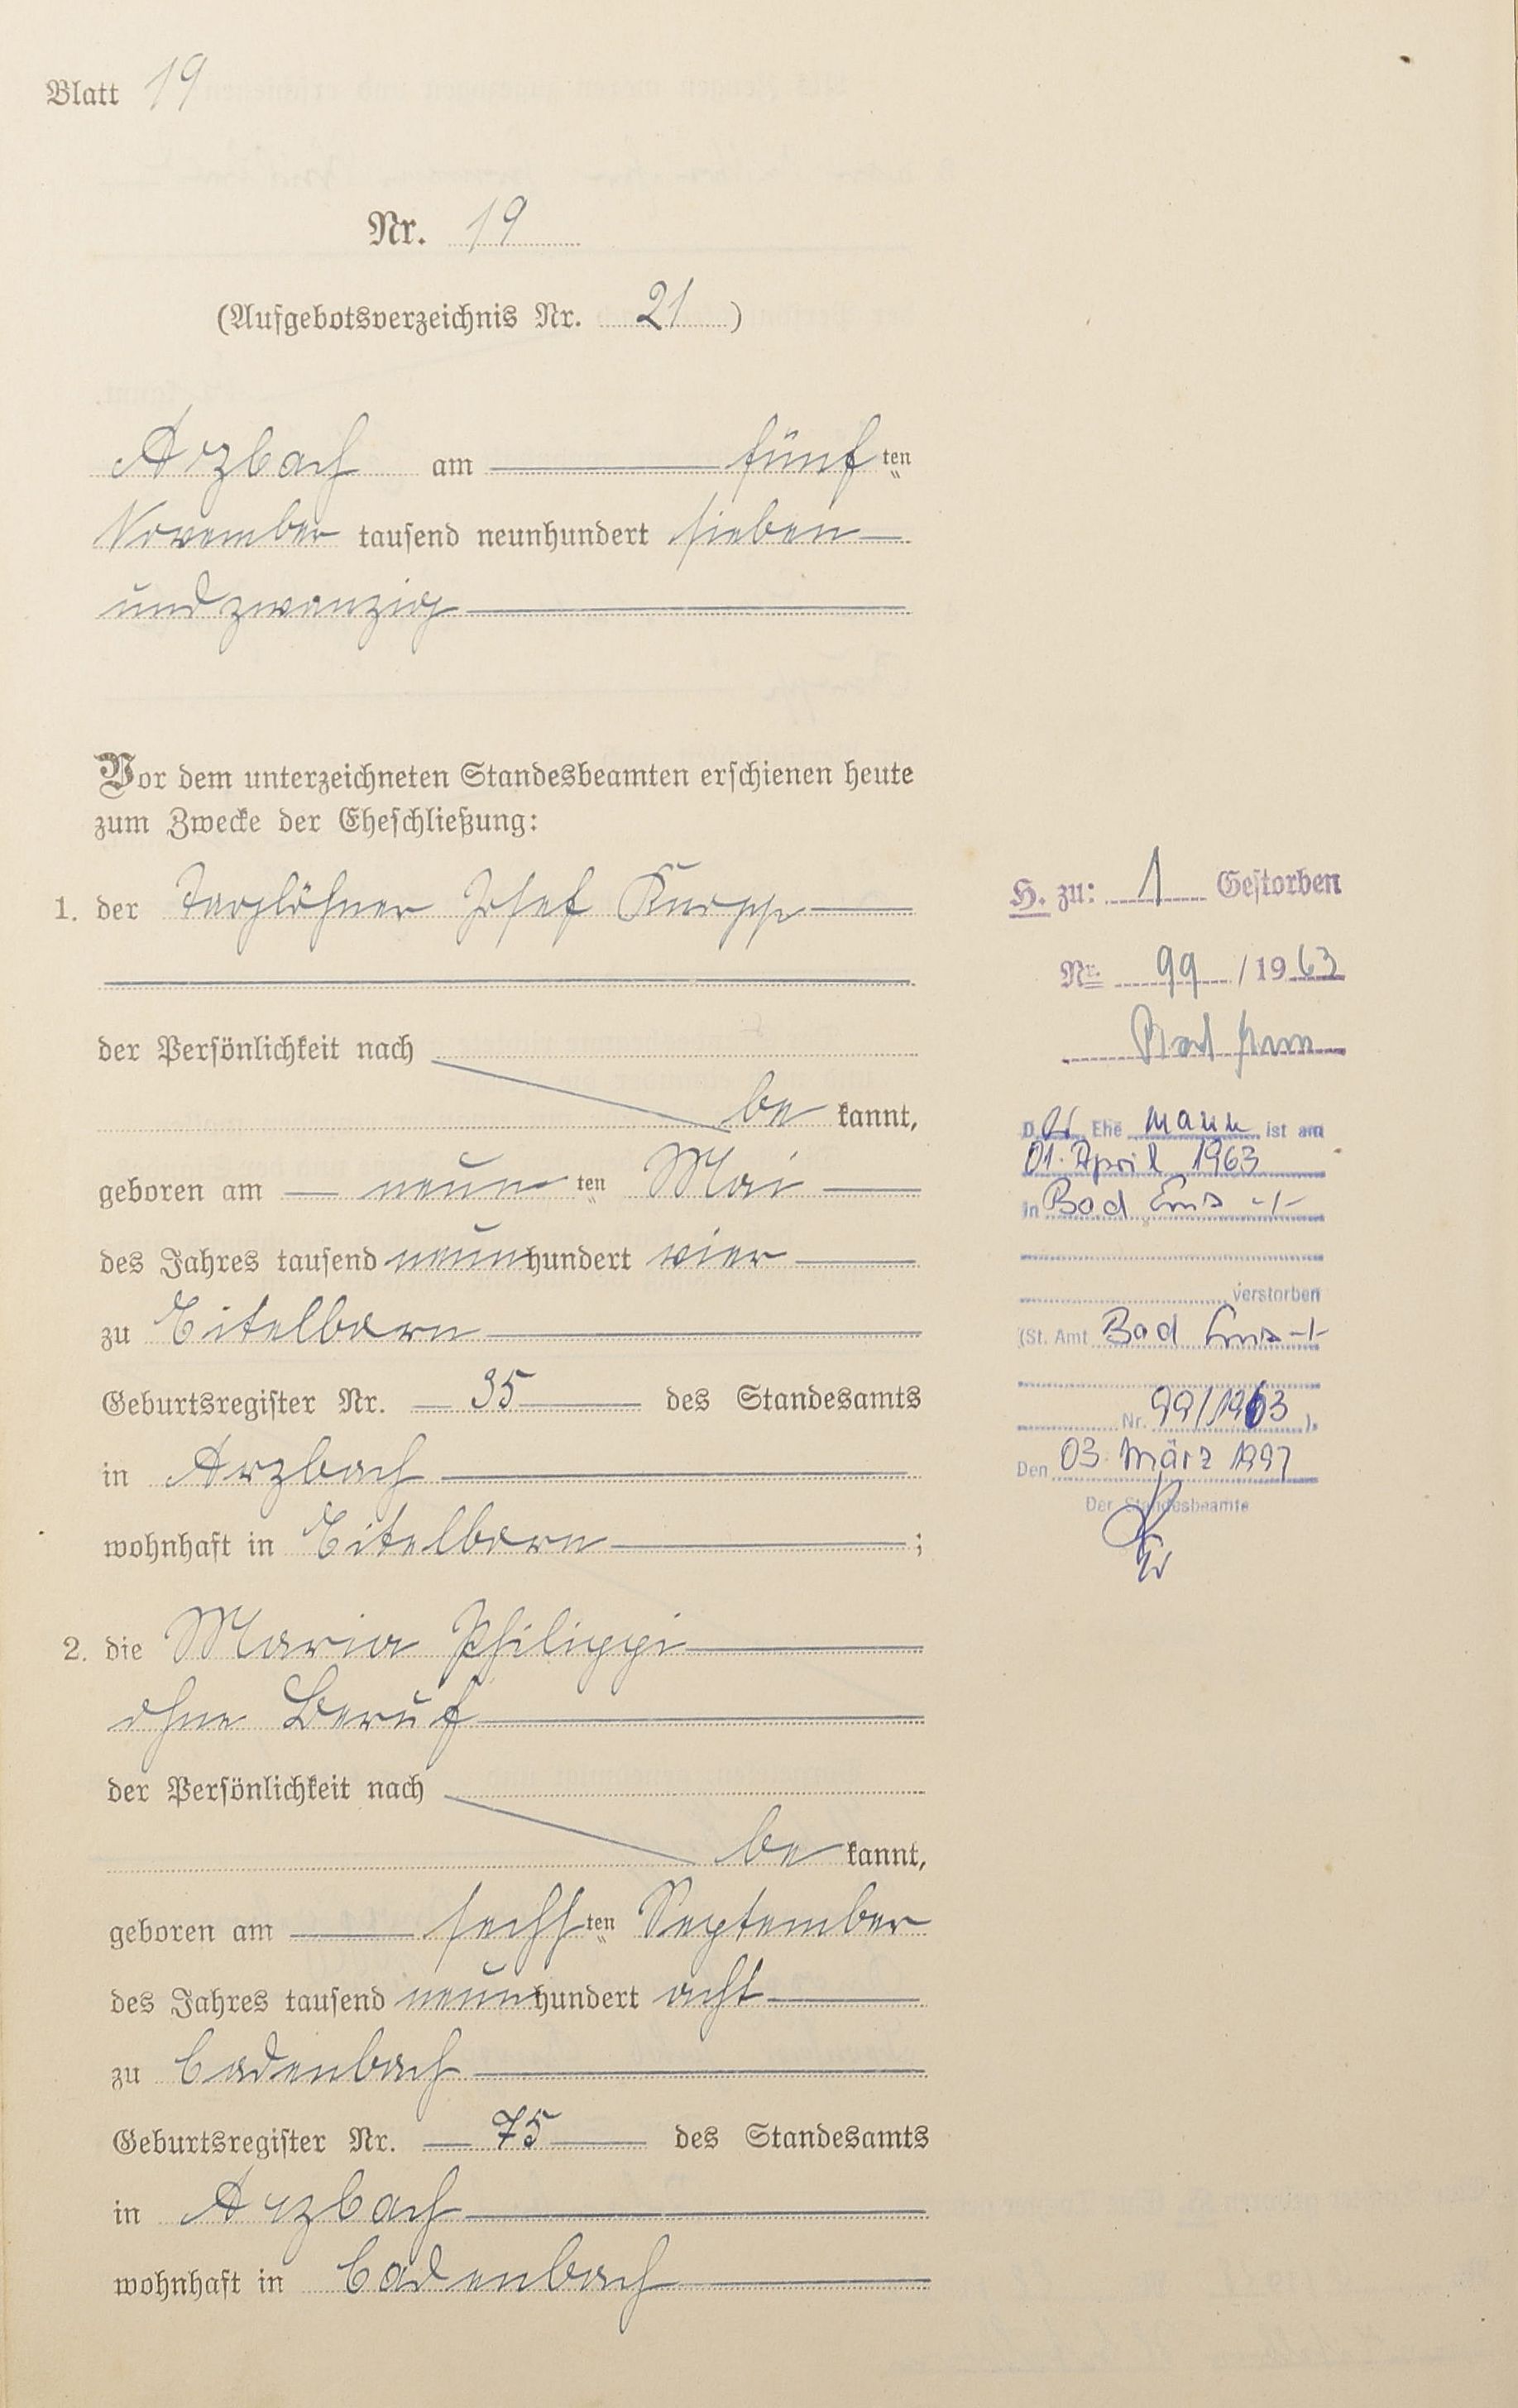 Blatt 19
Nr. 19
(Aufgebotsverzeichnis Nr. 21)
Arzbach am fünften
November tausend neunhundert sieben
und zwanzig
Vor dem unterzeichneten Standesbeamten erschienen heute
zum Zwecke der Eheschließung:
1. der Taglöhner Josef Knopp
der Persönlichkeit nach
be kannt,
geboren am neun ten Mai
des Jahres tausend neunhundert vier
zu Eitelborn
Geburtsregister Nr. 35 des Standesamts
in Arzbach
wohnhaft in Eitelborn ;
2. die Maria Philippi
ohne Beruf
der Persönlichkeit nach
be kannt,
geboren am sechsten September
des Jahres tausend neunhundert acht
zu Cadenbach
Geburtsregister Nr. 75 des Standesamts
in Arzbach
wohnhaft in Cadenbach
H. zu: 1 Gestorben
Nr. 99 / 1963
Bad Ems
Der Ehe mann ist am
01. April 1963
in Bad Ems -/-
verstorben
(St. Amt Bad Ems -/-
Nr. 99/1963 ).
Den 03. März 1997
Der Standesbeamte